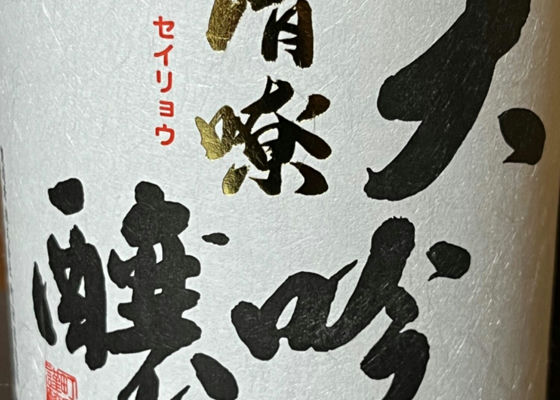 大吟
醸
清嘹
セイリョウ